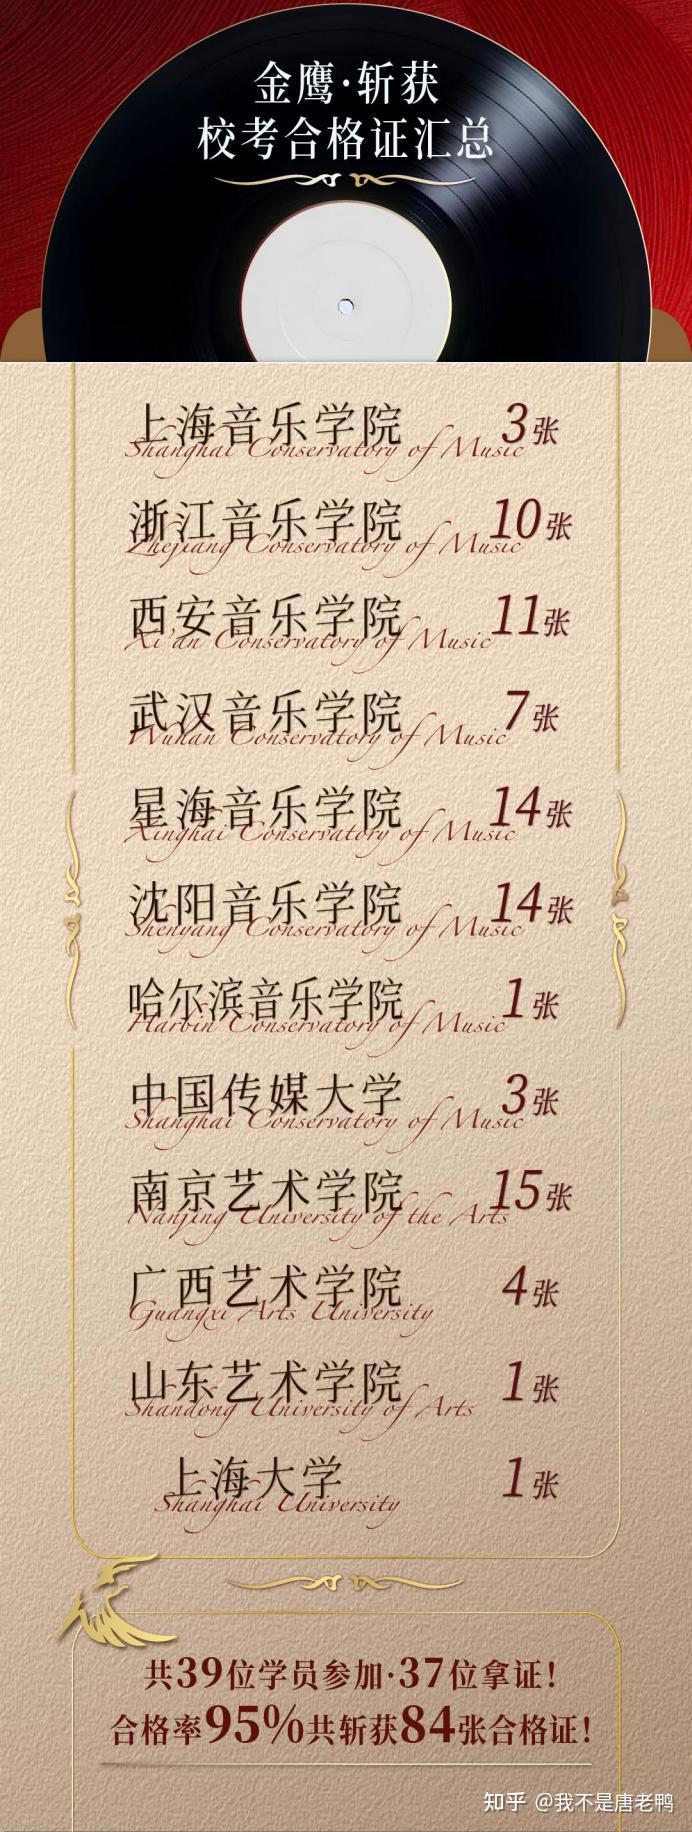 金鹰·斩获
校考合格证汇总
上海音乐学院 3张
Shanghai Conservatory of Music
浙江音乐学院 10张
Zhejiang Conservatory of Music
西安音乐学院 11张
Xi'an Conservatory of Music
武汉音乐学院 7张
Wuhan Conservatory of Music
星海音乐学院 14张
Xinghai Conservatory of Music
沈阳音乐学院 14张
Shenyang Conservatory of Music
哈尔滨音乐学院 1张
Harbin Conservatory of Music
中国传媒大学 3张
Shanghai Conservatory of Music
南京艺术学院 15张
Nanjing University of the Arts
广西艺术学院 4张
Guangxi Arts University
山东艺术学院 1张
Shandong University of Arts
上海大学 1张
Shanghai University
共39位学员参加·37位拿证!
合格率95%共斩获84张合格证!
知乎 @我不是唐老鸭